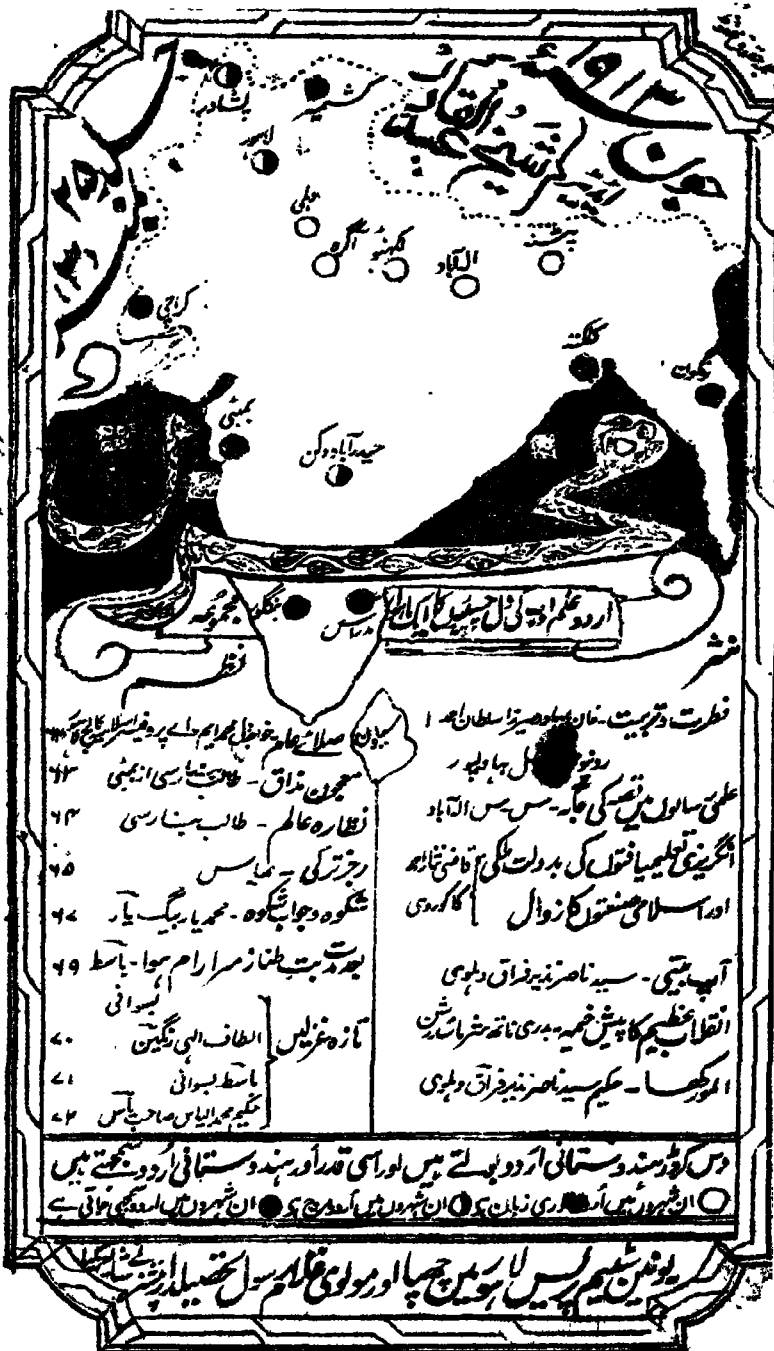 جون
۱۹۱۳
ایڈیٹر شیخ عبدالقادر
نمبر ۳
جلد ۲۵
پشاور
کشمیر
لاہور
دہلی
آگرہ
لکھنؤ
الہ آباد
پٹنہ
کراچی
کلکتہ
رنگون
بمبئی
حیدرآباد دکن
بنگلور
مدراس
سیلون
اردو علم ادب کی دل چسپیوں کا ایک
مجموعہ
نثر
فطرت و تربیت - خان بہادر میرزا سلطان احمد ۱
بہاولپور
علمی رسالوں میں قصہ کی جگہ - س س الہ آباد
انگریزی تعلیمیافتوں کی بدولت ملکی قاضی نثار احمد
اور اسلامی صنعتوں کا زوال کاکوروی
آپ بیتی - سید ناصر نذیر فراق دہلوی
انقلاب عظیم کا پیش خیمہ - بدری ناتھ سدرشن
الور کھسا - حکیم سید ناصر نذیر فراق دہلوی
نظم
صلائے عام - خواجہ دل محمد ایم - اے پروفیسر اسلامیہ کالج
معجون مذاق - طالب بنارسی از بمبئی ۶۳
نظارہ عالم - طالب بنارسی ۶۴
رجز ترکی - ۶۵
شکوہ و جواب شکوہ - محمد یار بیگ یار ۶۷
بعد مدت بت طناز مرا رام ہوا - باسط ۶۹
بسوانی
تازہ غزلیں
الطاف الہی رنگین ۷۰
باسط بسوانی ۷۱
حکیم محمد الیاس صاحب یاس ۷۲
دس کروڑ ہندوستانی اردو بولتے ہیں اور اسی قدر اور ہندوستانی اردو سمجھتے ہیں
ان شہروں میں اردو مادری زبان ہے ان شہروں میں اردو مروج ہے ان شہروں میں اردو سمجھی جاتی ہے
یونین سٹیم پریس لاہور میں چھپا اور مولوی غلام رسول تحصیلدار پنشنر نے شائع کیا